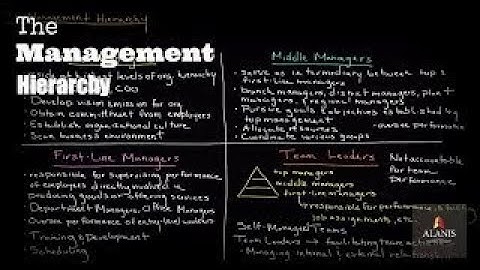 Management Hierarchy
The
Management
Hierarchy
highest levels of org. hierarchy
COOs
Develop vision & mission for org.
Obtain commitment from employees
Establish organizational culture
Scan business environment
Middle Managers
Serve as intermediary between top &
first-line managers
branch managers, district managers, plant
managers, & regional managers
Pursue goals & objectives established by
top management
Allocate resources
Coordinate various groups
oversee performance
First-Line Managers
responsible for supervising performance
of employees directly involved in
producing goods or offering services
Department Managers, Office Managers
Oversee performance of entry-level workers
Training & Development
Scheduling
Team Leaders
top managers
middle managers
first-line managers
Not accountable
for team
performance
job assignments, etc.
Self-Managed Teams
Team Leaders → facilitating team activities
Managing internal & external relationships
ALANIS